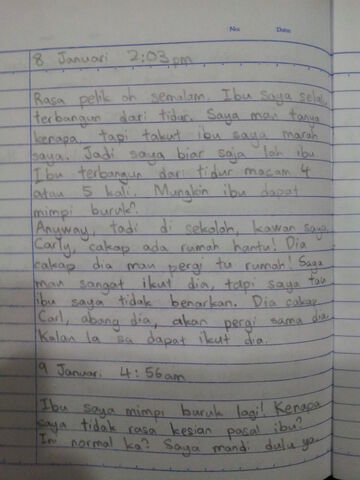 No:
Date:
8 Januari 2:03pm
Rasa pelik oh semalam. Ibu saya selalu
terbangun dari tidur. Saya mau tanya
kenapa, tapi takut ibu saya marah
saya. Jadi saya biar saja lah ibu.
Ibu terbangun dari tidur macam 4
atau 5 kali. Mungkin ibu dapat
mimpi buruk?
Anyway, tadi di sekolah, kawan saya,
Carly, cakap ada rumah hantu! Dia
cakap dia mau pergi tu rumah! Saya
mau sangat ikut dia, tapi saya tau
ibu saya tidak benarkan. Dia cakap
Carl, abang dia, akan pergi sama dia.
Kalau la sa dapat ikut dia.
9 Januari 4:56am
Ibu saya mimpi buruk lagi! Kenapa
saya tidak rasa kesian pasal ibu?
Ini normal ka? Saya mandi dulu ya.